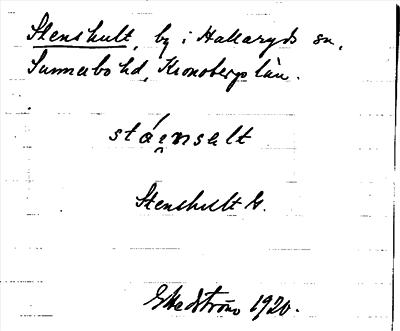 Stenshult, by i Hallaryds sn,
Sunnerbo hd, Kronobergs län.
stáe̯nsalt
Stenshult G.
Ekedström 1920.